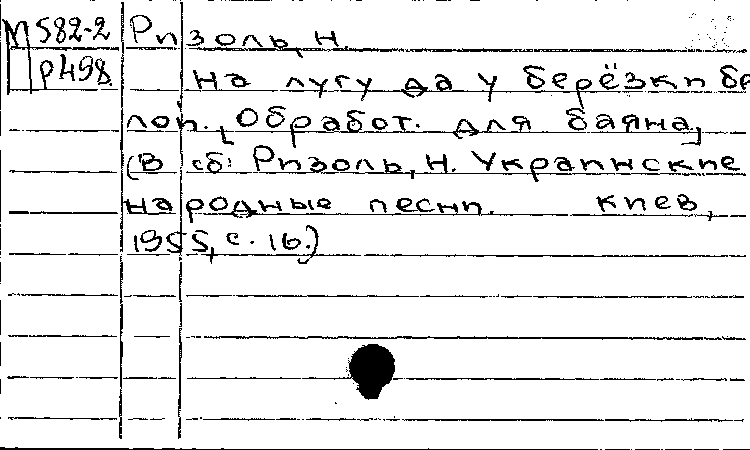 М 582-2 Ризоль, Н.
р498 На лугу да у берёзки бе
лой. [Обработ. для баяна]
(В сб: Ризоль, Н. Украинские
народные песни. Киев,
1955, с. 16.)